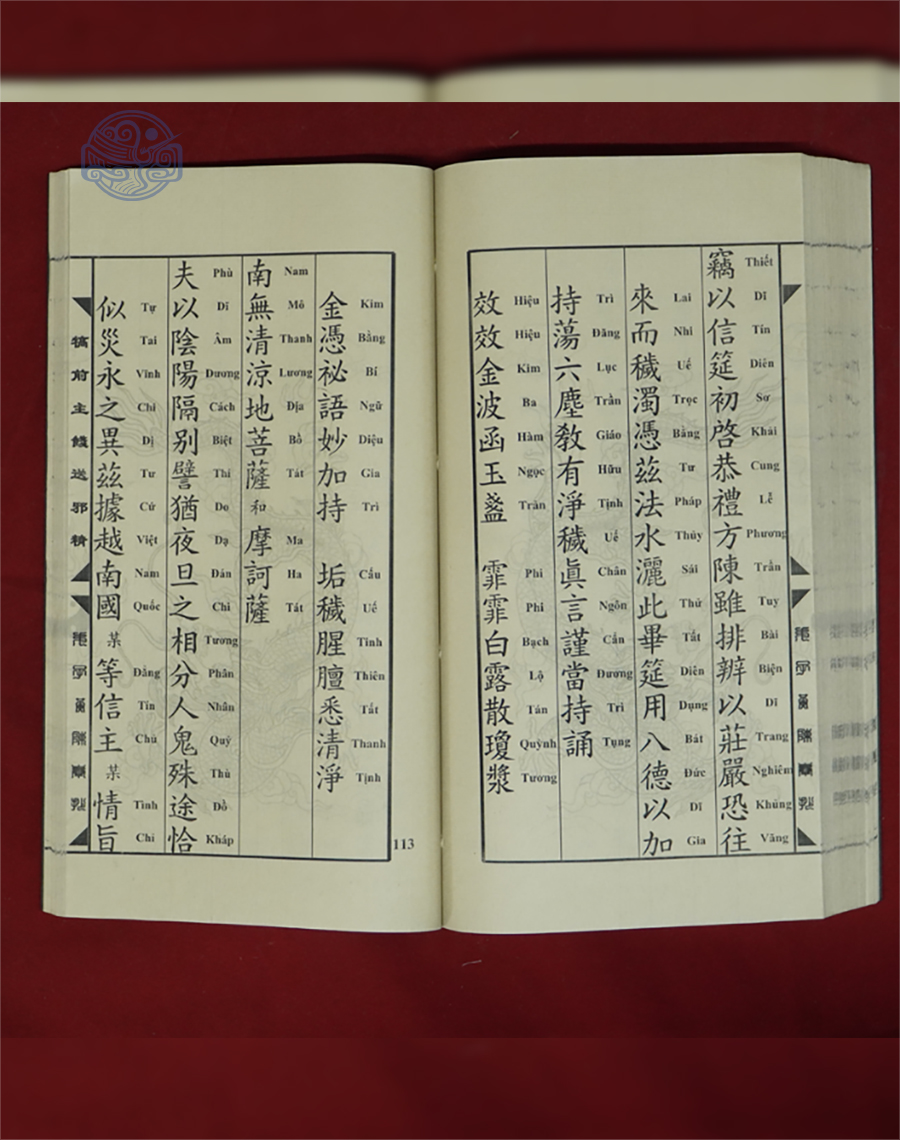 竊以信筵初啓恭禮方陳雖排辨以莊嚴恐往
Thiết Dĩ Tín Diên Sơ Khải Cung Lễ Phương Trần Tuy Bài Biện Dĩ Trang Nghiêm Khủng Vãng
來而穢濁憑茲法水灑此畢筵用八德以加
Lai Nhi Uế Trọc Bằng Tư Pháp Thủy Sái Thử Tất Diên Dụng Bát Đức Dĩ Gia
持蕩六塵教有淨穢眞言謹當持誦
Trì Đãng Lục Trần Giáo Hữu Tịnh Uế Chân Ngôn Cẩn Đương Trì Tụng
效效金波函玉盞 霏霏白露散瓊漿
Hiệu Hiệu Kim Ba Hàm Ngọc Tràn Phi Phi Bạch Lộ Tán Quỳnh Tương
金憑祕語妙加持 垢穢腥膻悉清淨
Kim Bằng Bí Ngữ Diệu Gia Trì Cấu Uế Tinh Thiên Tất Thanh Tịnh
南無清涼地菩薩和摩訶薩
Nam Mô Thanh Lương Địa Bồ Tát Ma Ha Tát
夫以陰陽隔别譬猶夜旦之相分人鬼殊途恰
Phù Dĩ Âm Dương Cách Biệt Thí Do Dạ Đán Chi Tương Phân Nhân Quỷ Thù Đồ Kháp
似災永之異茲據越南國某等信主某情旨
Tự Tai Vĩnh Chi Dị Tư Cứ Việt Nam Quốc Đẳng Tín Chủ Tình Chỉ
犒前主餞送邪精
113